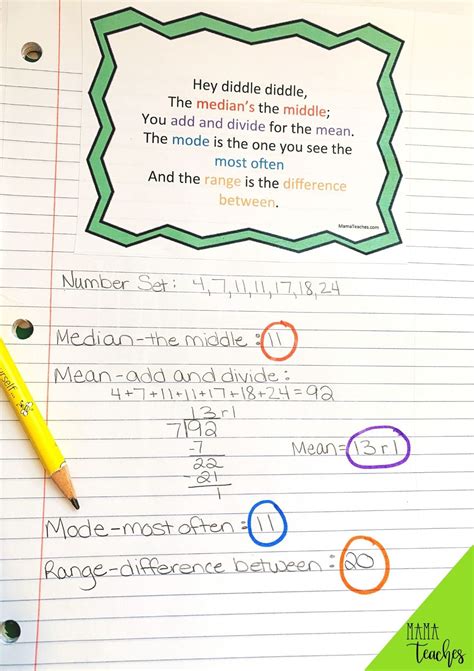 Hey diddle diddle,
The median's the middle;
You add and divide for the mean.
The mode is the one you see the
most often
And the range is the difference
between.
MamaTeaches.com
Number Set: 4,7,11,11,17,18,24
Median-the middle: 11
Mean-add and divide:
4+7+11+11+17+18+24=92
13r1
7)92
-7
22
-21
1
Mean=13r1
Mode-most often: 11
Range-difference between: 20
MAMA
Teaches